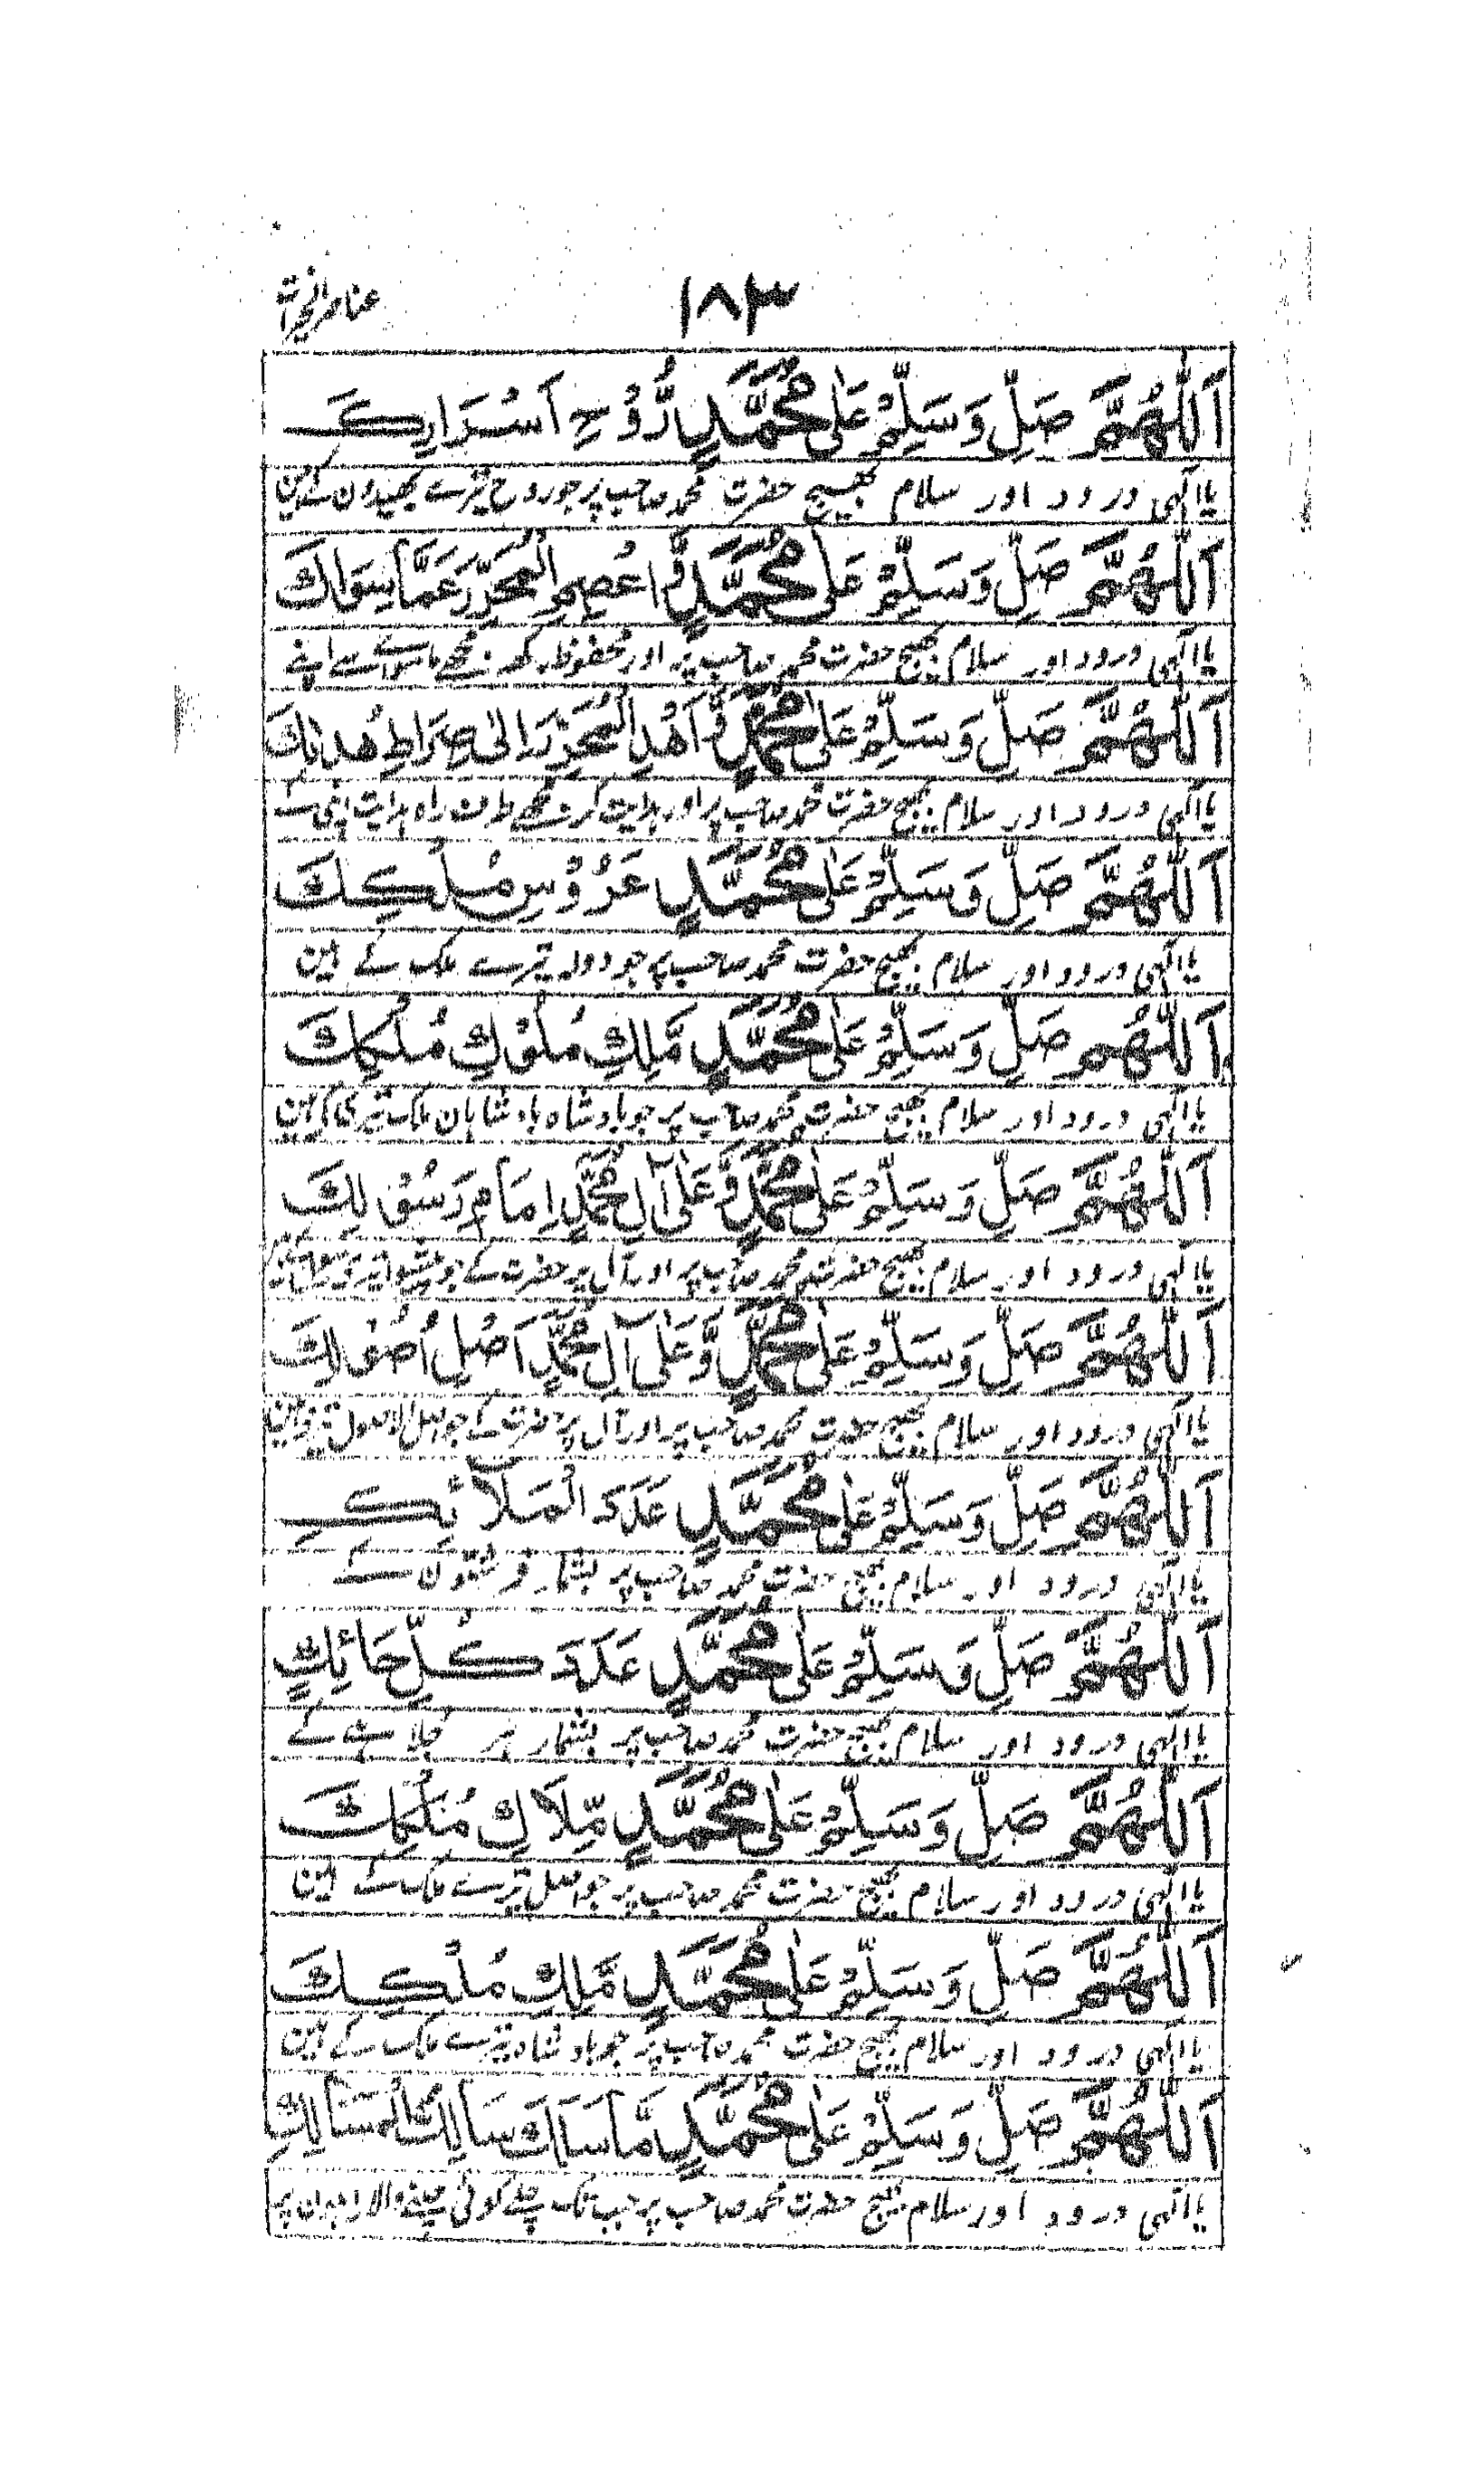 ١٨٣
عناصر الخیرات
اَللّٰهُمَّ صَلِّ وَسَلِّمْ عَلٰى مُحَمَّدٍ رُّوْحِ اَسْرَارِكَ
یا الٰہی درود اور سلام بھیج حضرت محمد صاحب پر جو روح تیرے بھیدون کے ہین
اَللّٰهُمَّ صَلِّ وَسَلِّمْ عَلٰى مُحَمَّدٍ وَّاعْصِمِ الْمُحَرِّرَ عَمَّا سِوَاكَ
یا الٰہی درود اور سلام بھیج حضرت محمد صاحب پر اور محفوظ رکھ مجھے ماسواے سے اپنے
اَللّٰهُمَّ صَلِّ وَسَلِّمْ عَلٰى مُحَمَّدٍ وَّاهْدِ الْمُحَرِّرَ اِلٰى صِرَاطِ هُدَاكَ
یا الٰہی درود اور سلام بھیج حضرت محمد صاحب پر اور ہدایت کر مجھے طرف راہ ہدایت اپنی کے
اَللّٰهُمَّ صَلِّ وَسَلِّمْ عَلٰى مُحَمَّدٍ عَرُوْسِ مُلْكِكَ
یا الٰہی درود اور سلام بھیج حضرت محمد صاحب پر جو دولہ تیرے ملک کے ہین
اَللّٰهُمَّ صَلِّ وَسَلِّمْ عَلٰى مُحَمَّدٍ مَّلِكِ مُلُوْكِ مُلْكِكَ
یا الٰہی درود اور سلام بھیج حضرت محمد صاحب پر جو بادشاہ بادشاہان ملک تیری کے ہین
اَللّٰهُمَّ صَلِّ وَسَلِّمْ عَلٰى مُحَمَّدٍ وَّعَلٰى اٰلِ مُحَمَّدٍ اِمَامِ رَسُوْلِكَ
یا الٰہی درود اور سلام بھیج حضرت محمد صاحب پر اور آل پر حضرت کے جو پیشوا تیرے
اَللّٰهُمَّ صَلِّ وَسَلِّمْ عَلٰى مُحَمَّدٍ وَّعَلٰى اٰلِ مُحَمَّدٍ اَصْلِ اُصُوْلِكَ
یا الٰہی درود اور سلام بھیج حضرت محمد صاحب پر اور آل پر حضرت کے جو اصل الاصول تیرے ہین
اَللّٰهُمَّ صَلِّ وَسَلِّمْ عَلٰى مُحَمَّدٍ عَدَدَ الْمَلَآئِكِ
یا الٰہی درود اور سلام بھیج حضرت محمد صاحب پر بشمار فرشتون کے
اَللّٰهُمَّ صَلِّ وَسَلِّمْ عَلٰى مُحَمَّدٍ عَدَدَ كُلِّ حَائِكٍ
یا الٰہی درود اور سلام بھیج حضرت محمد صاحب پر بشمار ہر جلاہے کے
اَللّٰهُمَّ صَلِّ وَسَلِّمْ عَلٰى مُحَمَّدٍ مِّلَاكِ مُلْكِكَ
یا الٰہی درود اور سلام بھیج حضرت محمد صاحب پر جو اصل تیرے ملک کے ہین
اَللّٰهُمَّ صَلِّ وَسَلِّمْ عَلٰى مُحَمَّدٍ مَّلِكِ مُلْكِكَ
یا الٰہی درود اور سلام بھیج حضرت محمد صاحب پر جو بادشاہ تیرے ملک کے ہین
اَللّٰهُمَّ صَلِّ وَسَلِّمْ عَلٰى مُحَمَّدٍ مَّا سَلَكَ سَالِكُ الْمَسَالِكِ
یا الٰہی درود اور سلام بھیج حضرت محمد صاحب پر جب تک چلے کوئی چلنے والا راہون پر